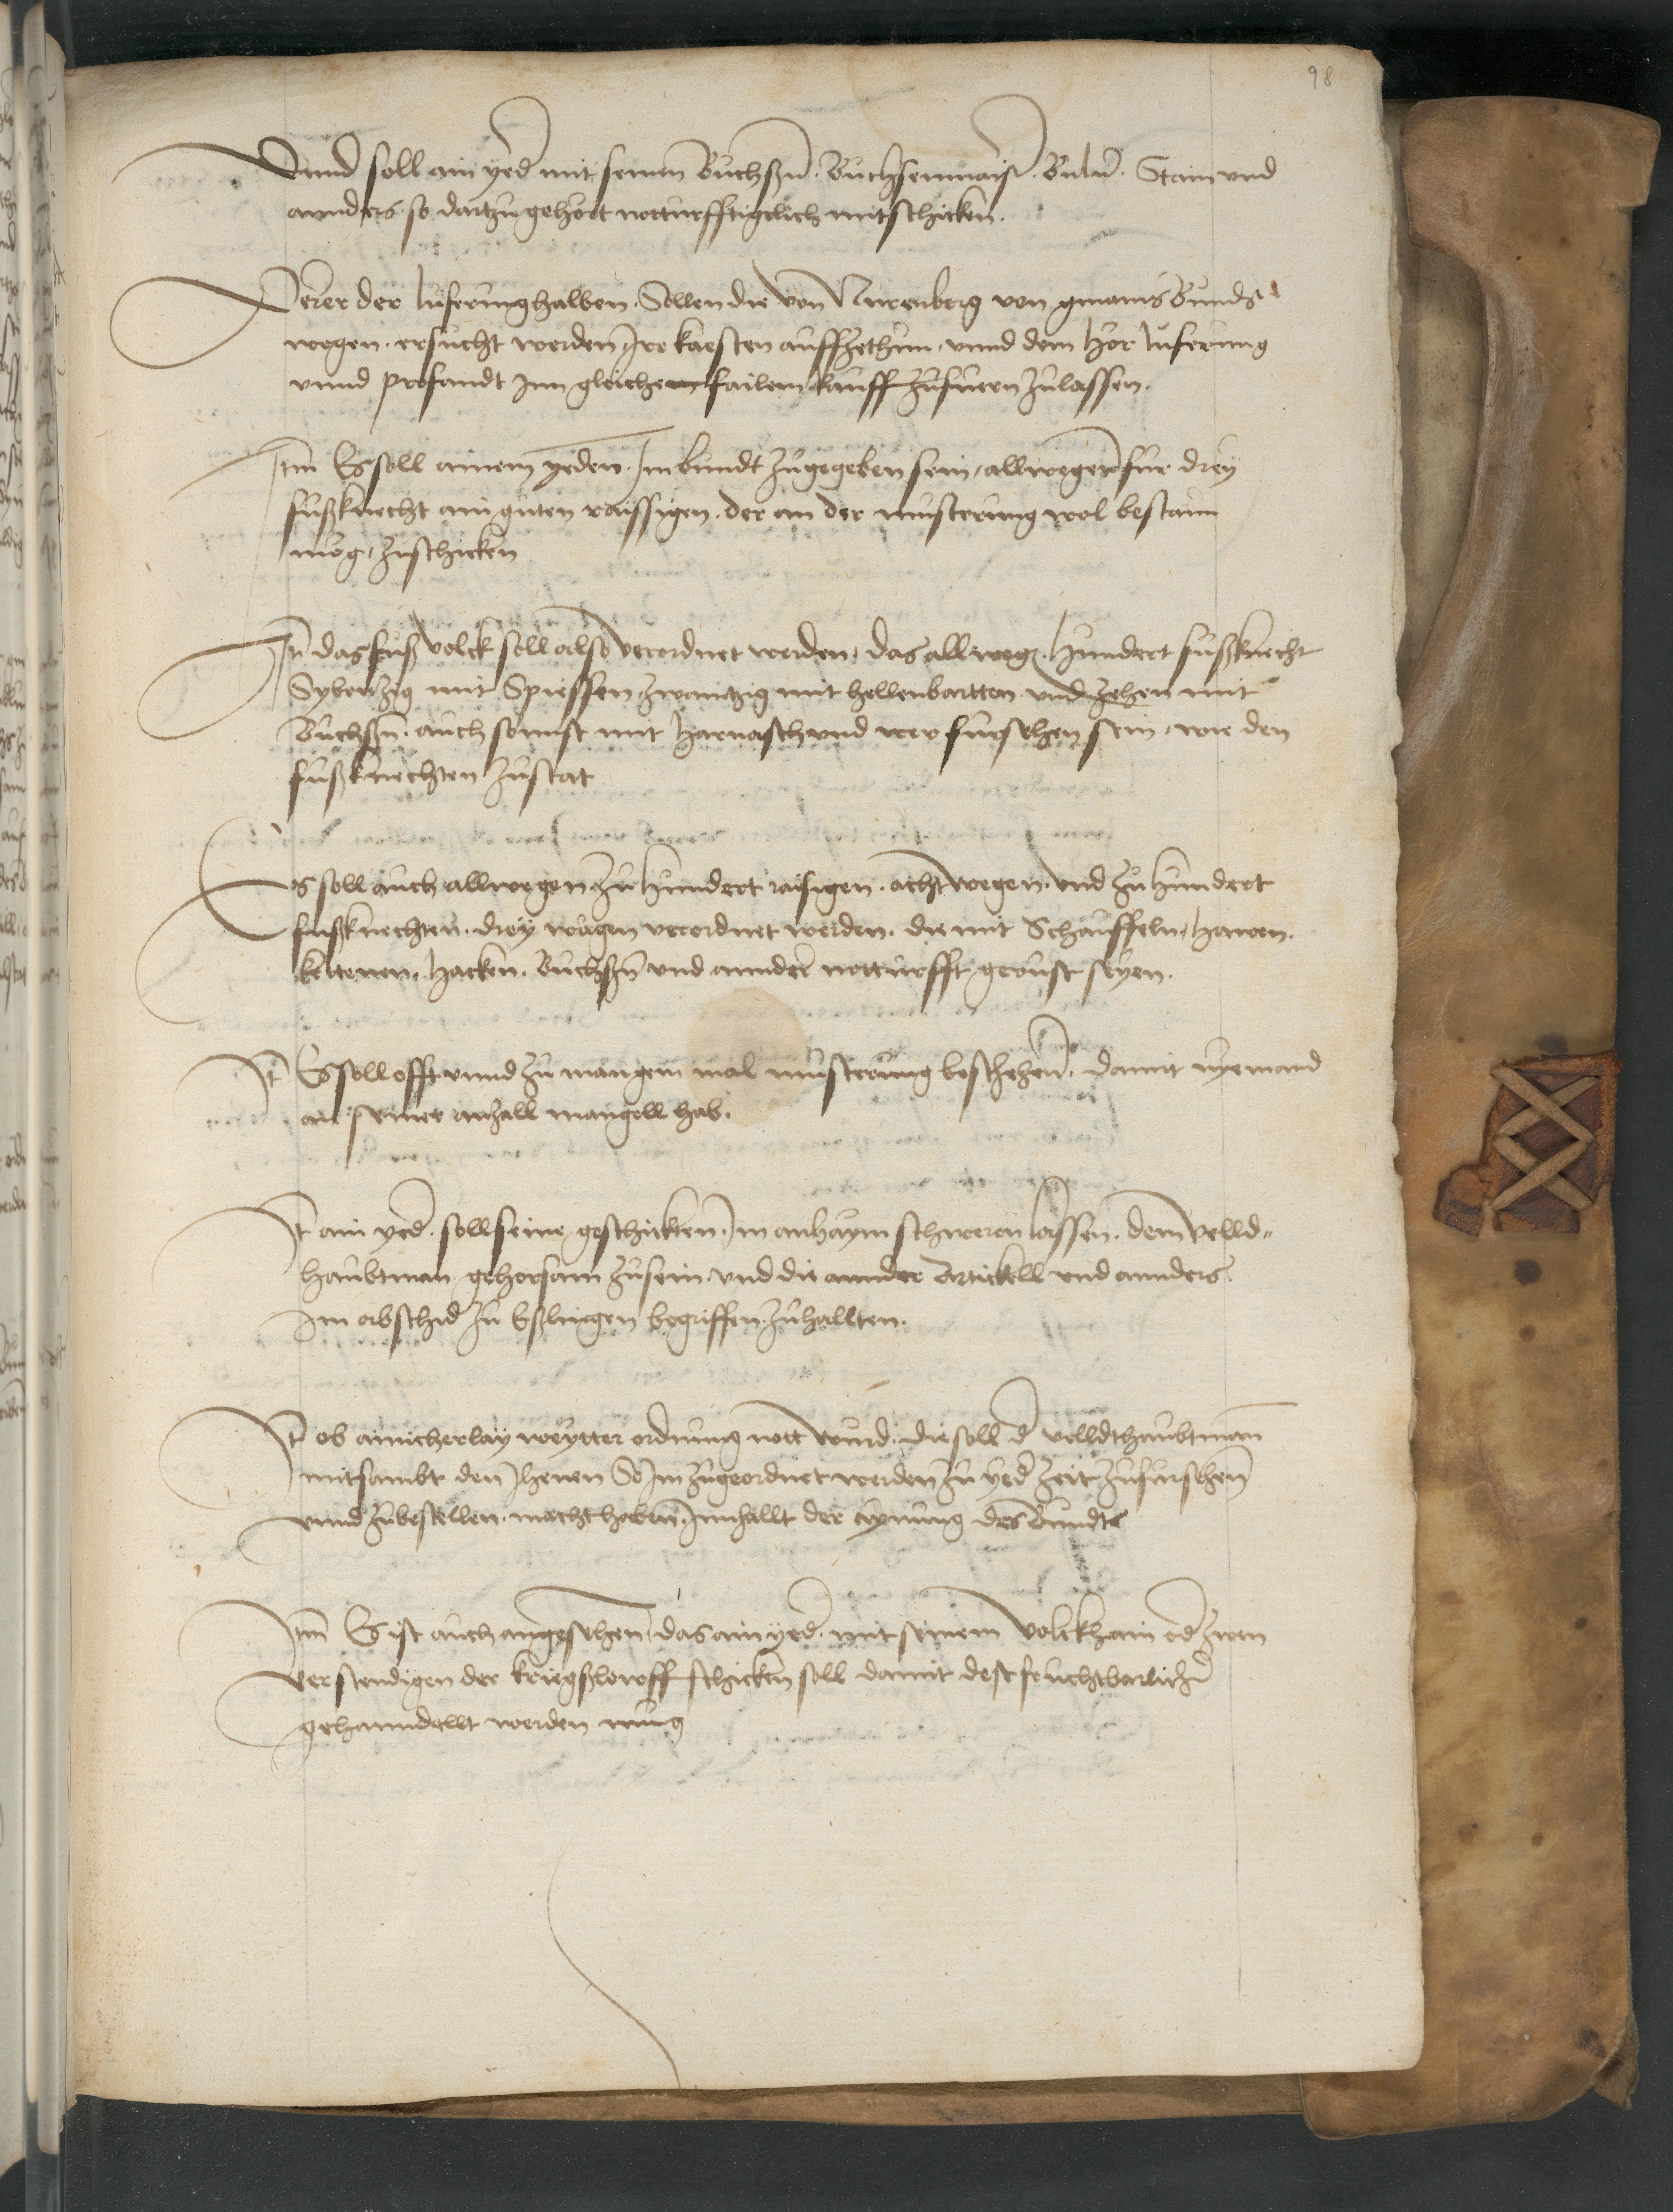 98
Vnnd soll ain yed mit seinen Buchßn. Buchsenmaist. Bulu. Stain vnd
annders so dartzu gehort notturfftigclich mitschicken.
Ferer der luferung halben. Sollen die von Nurenberg von gmains Bunds
wegen. ersucht werden Jre kaesten auffzethun, vnnd dem Hor luferung
vnnd profandt Jnn gleichem failem kauff zufuern zulassen.
Jtm Es soll ainem yeden. Jm bundt zugegeben sein, allwegen fur drey
fußknecht ain guten raissigen. der an der musterung wol bestaun
mög, zuschicken
Jt das fußvolck soll also verordnet werden, das allweg. hundert fußknecht
Sybentzig mit Spiessen zwaintzig mit hellenbartten vnd zehen mit
Buchßn. auch sonnst mit Harnasch vnd wer fursehen sein, wie den
fußknechten zustat
Es soll auch allwegen zu hundert raisigen. acht wegen. vnd zu hundert
fußknechten. drey wägen verordnet werden. die mit Schauffeln, hawen.
kettenen. Hacken. Buchßn vnd annder notturfft gerust seyen.
Jt Es soll offt vnnd zu mangem mal musterung beschehen. damit nyemand
an seiner anzall mangell hab.
Jt ain yed. soll seine geschickten. Jm anhaym schweren lassen. dem velld„
haubtman gehorsam zusein vnd die annder Artickell vnd annders
Jm abschid zu Eßlingen begriffen zuhallten.
Jt ob ainicherlay weytter ordnung nott wurd. die soll d velldthaubtman
mitsambt den Jhenen So Jm zugeordnet werden zu yed zeit zufursehen
vnnd zubestellen. macht haben. Jnnhallt der aynung des Bundts
Jtm Es ist auch angesehen, das ain yed. mit seinem volckh ain od zwen
verstendigen der kriegßloeff schicken soll damit dest fruchtbarlichd
gehanndellt werden mug